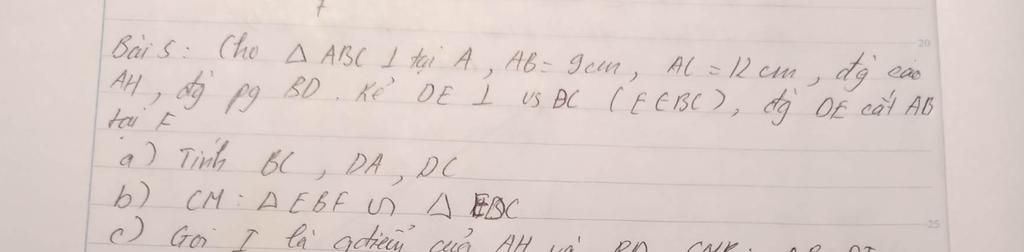 Bài 5: Cho Δ ABC ⊥ tại A, AB = 9cm, AC = 12 cm, đg cao
AH, đg pg BD. Kẻ DE ⊥ vs BC (E ∈ BC), đg DE cắt AB
tại F
a) Tính BC, DA, DC
b) CM: Δ EBF ∽ Δ EDC
c) Gọi I là gđiểm của AH và BD
20
25